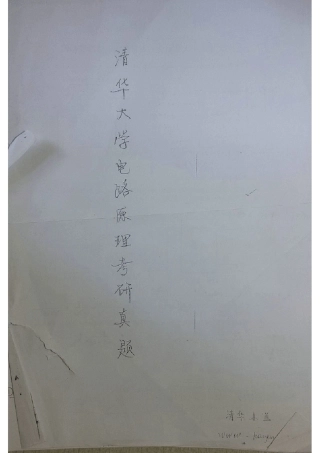 清华大学电路原理考研真题
清华